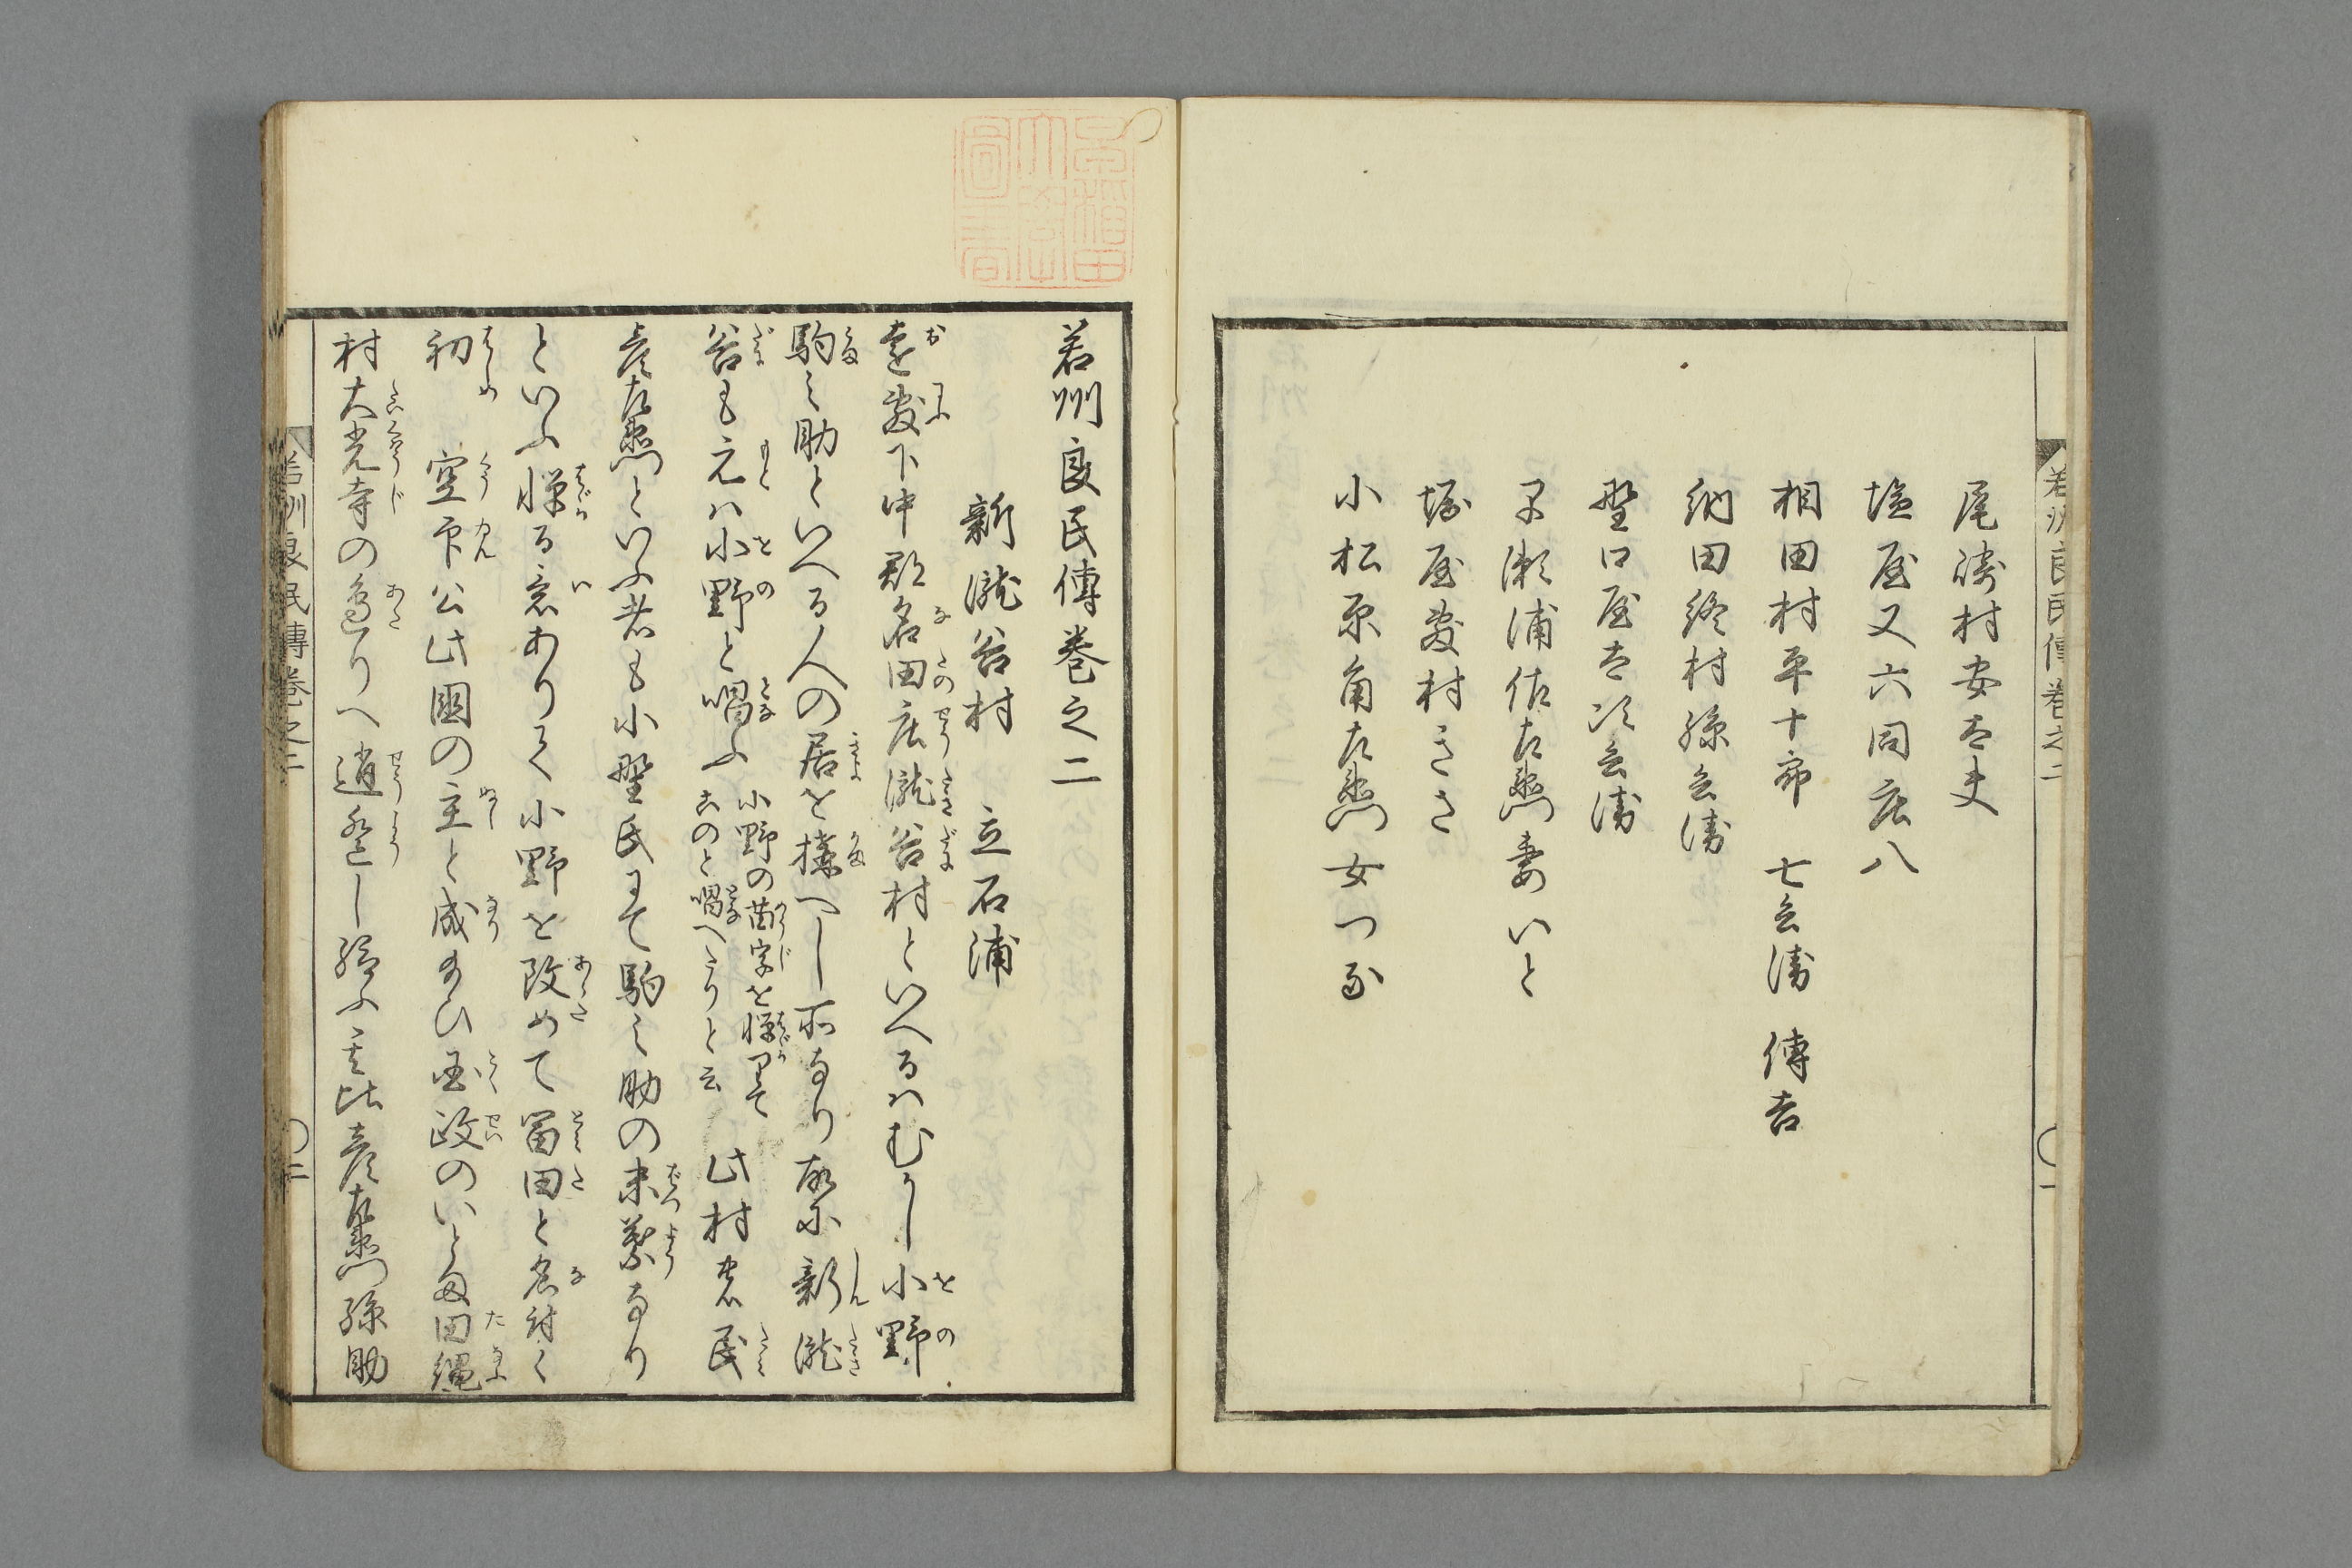 若州良民傳卷之二
〇一
尾崎村安太夫
塩屋又六同庄八
相田村平十郎　七兵衛　傳吉
納田終村孫兵衛
野口屋太次兵衛
早瀬浦佐左衛門妻いと
堀屋敷村きさ
小松原角左衛門女つる
若州良民傳卷之二
新瀧谷村　立石浦
遠敷下中郡名田庄瀧谷村といへるハむかし小野
駒之助といへる人の居を搆へし所なり故に新瀧
谷も元ハ小野と唱ふ
小野の苗字を憚りて
おのと唱へたりと云
此村の民
彦左衛門といふ者も小野氏にて駒之助の末葉なり
といふ憚る意ありて小野を改めて冨田と名付く
初　空印公此國の主と成給ひ国政のいとま田縄
村大光寺の邊りへ逍遙し給ふ其比彦左衛門孫助
若州良民傳卷之二
〇二